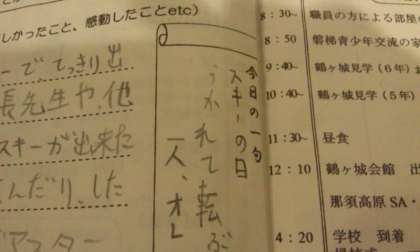 しかったこと、感動したことetc)
ーで、てっきり出
長先生や、他
スキーが出来た
んだり、した
アフター
今日の一句
スキーの日
うかれて転ぶ
一人、オレ
8:30~ 職員の方による部屋
8:50 磐梯青少年交流の家
9:40~ 鶴ヶ城見学(6年)
10:40~ 鶴ヶ城見学(5年)
11:30~ 昼食
12:10 鶴ヶ城会館 出
那須高原SA・
4:20 学校 到着